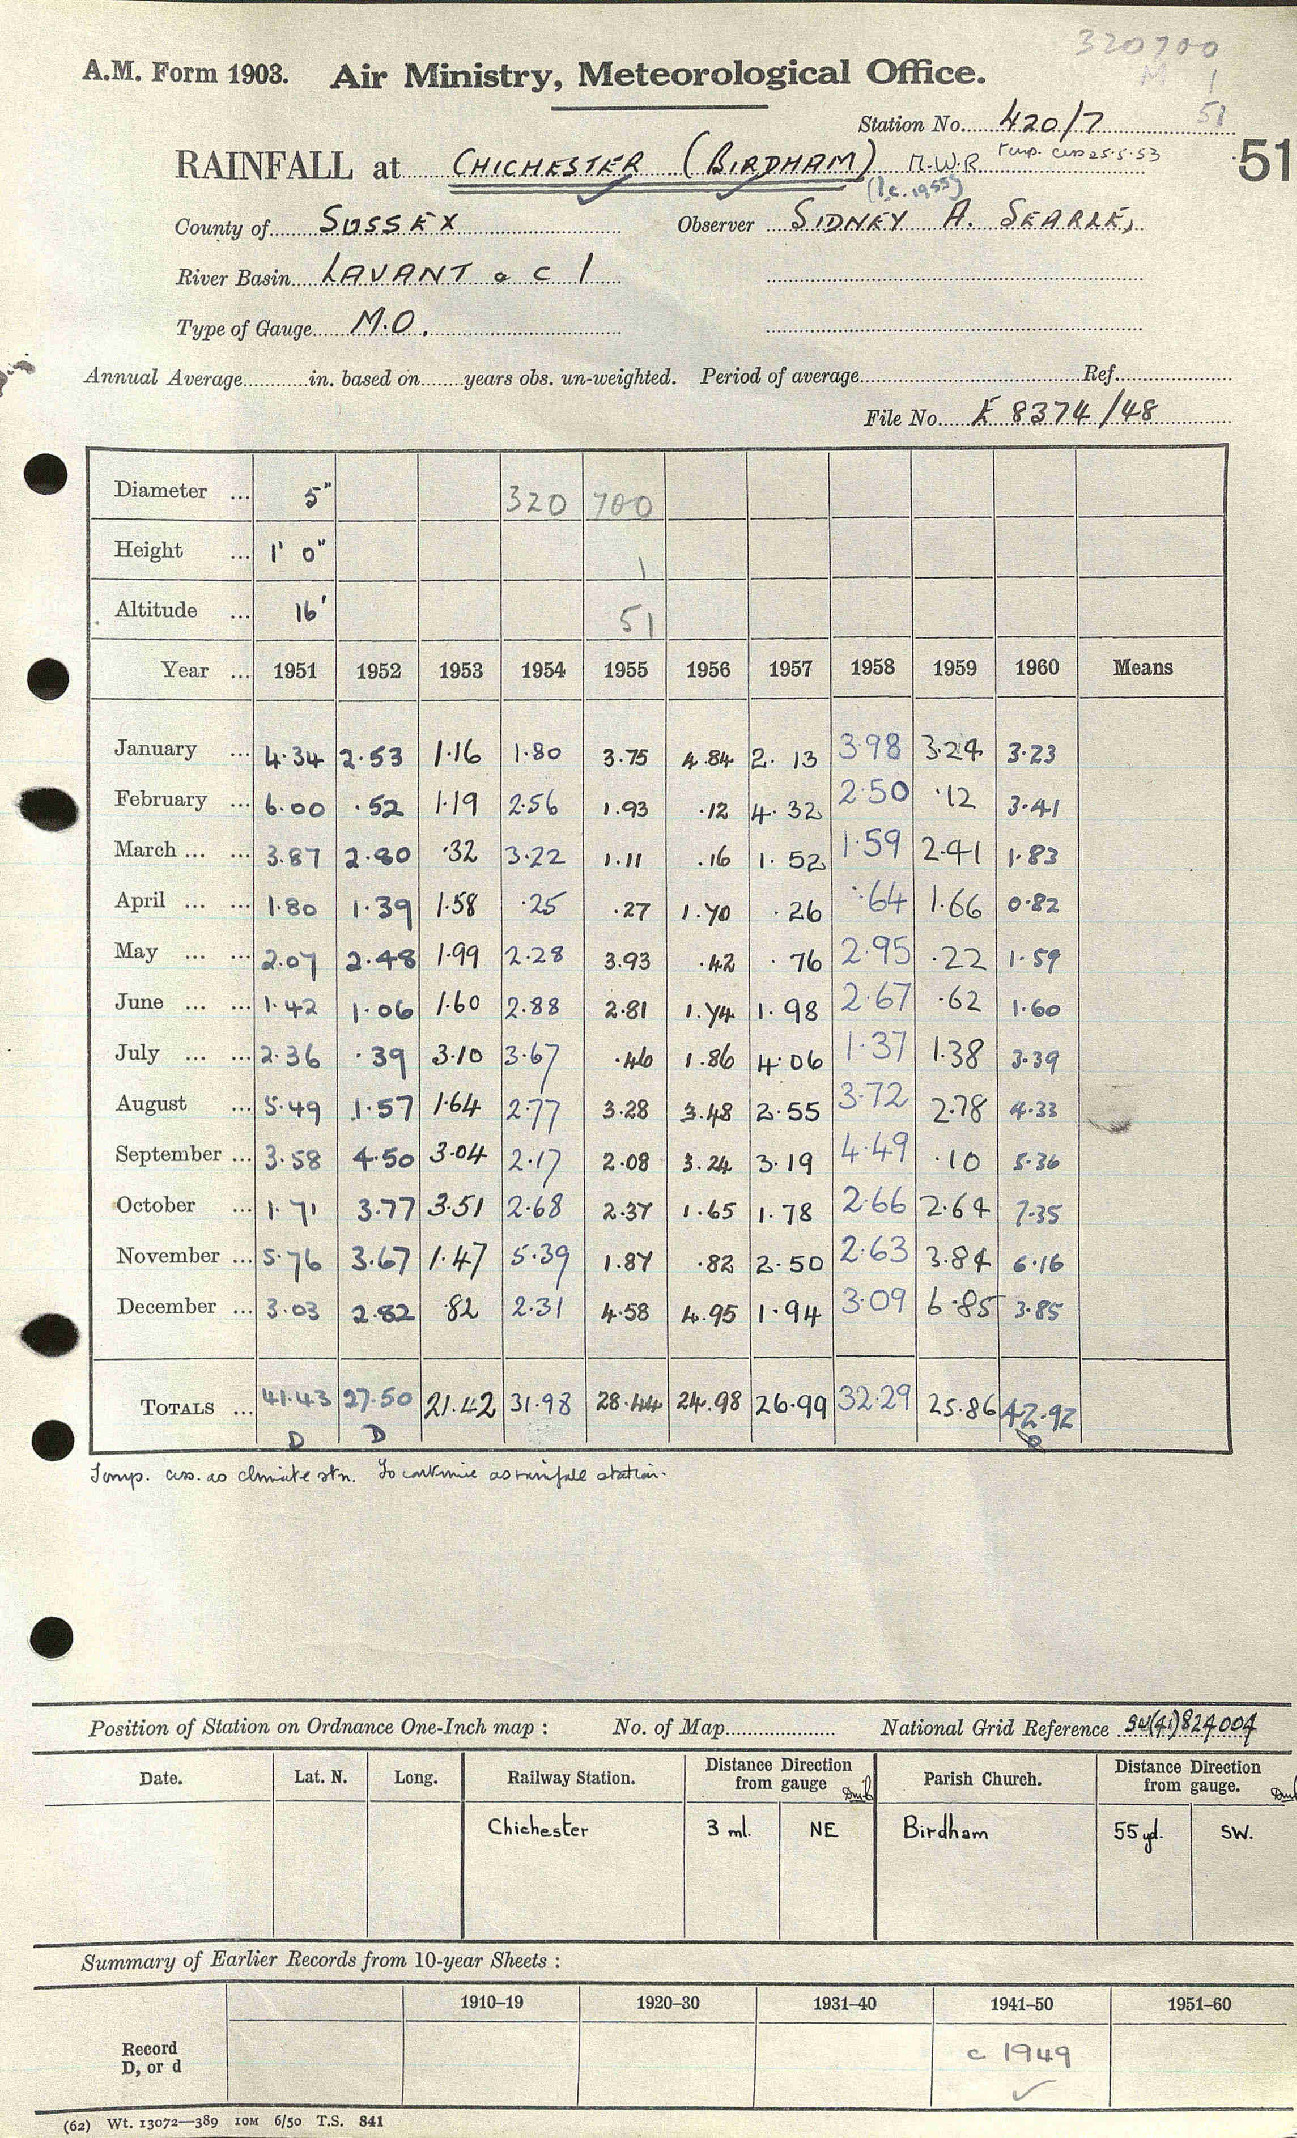 320700
M 1
51
A.M. Form 1903. Air Ministry, Meteorological Office.
Station No. 420/7
RAINFALL at CHICHESTER (BIRDHAM) M.W.R. Temp. cess 25.5.53
51
County of SUSSEX Observer SIDNEY A. SEARLE,
River Basin LAVANT & C 1
Type of Gauge M.O.
Annual Average in. based on years obs. un-weighted. Period of average Ref.
File No. E 8374/48
Diameter ... 5" 320 700
Height ... 1' 0" 1
Altitude ... 16' 51
Year ... 1951 1952 1953 1954 1955 1956 1957 1958 1959 1960 Means
January ... 4.34 2.53 1.16 1.80 3.75 4.84 2.13 3.98 3.24 3.23
February ... 6.00 .52 1.19 2.56 1.93 .12 4.32 2.50 .12 3.41
March ... ... 3.87 2.80 .32 3.22 1.11 .16 1.52 1.59 2.41 1.83
April ... ... 1.80 1.39 1.58 .25 .27 1.70 .26 .64 1.66 0.82
May ... ... 2.07 2.48 1.99 2.28 3.93 .42 .76 2.95 .22 1.59
June ... ... 1.42 1.06 1.60 2.88 2.81 1.74 1.98 2.67 .62 1.60
July ... ... 2.36 .39 3.10 3.67 .46 1.86 4.06 1.37 1.38 3.39
August ... 5.49 1.57 1.64 2.77 3.28 3.48 2.55 3.72 2.78 4.33
September ... 3.58 4.50 3.04 2.17 2.08 3.24 3.19 4.49 .10 5.36
October ... 1.71 3.77 3.51 2.68 2.37 1.65 1.78 2.66 2.64 7.35
November ... 5.76 3.67 1.47 5.39 1.87 .82 2.50 2.63 3.84 6.16
December ... 3.03 2.82 .82 2.31 4.58 4.95 1.94 3.09 6.85 3.85
TOTALS ... 41.43 27.50 21.42 31.98 28.44 24.98 26.99 32.29 25.86 42.92
D D
Temp. cess. as climate stn. To continue as rainfall station.
Position of Station on Ordnance One-Inch map : No. of Map National Grid Reference SU(41)824004
Date. Lat. N. Long. Railway Station. Distance Direction from gauge Parish Church. Distance Direction from gauge.
Chichester 3 ml. NE Birdham 55 yd. SW.
Summary of Earlier Records from 10-year Sheets :
1910–19 1920–30 1931–40 1941–50 1951–60
Record
D, or d
c 1949
(62) Wt. 13072—389 10M 6/50 T.S. 841